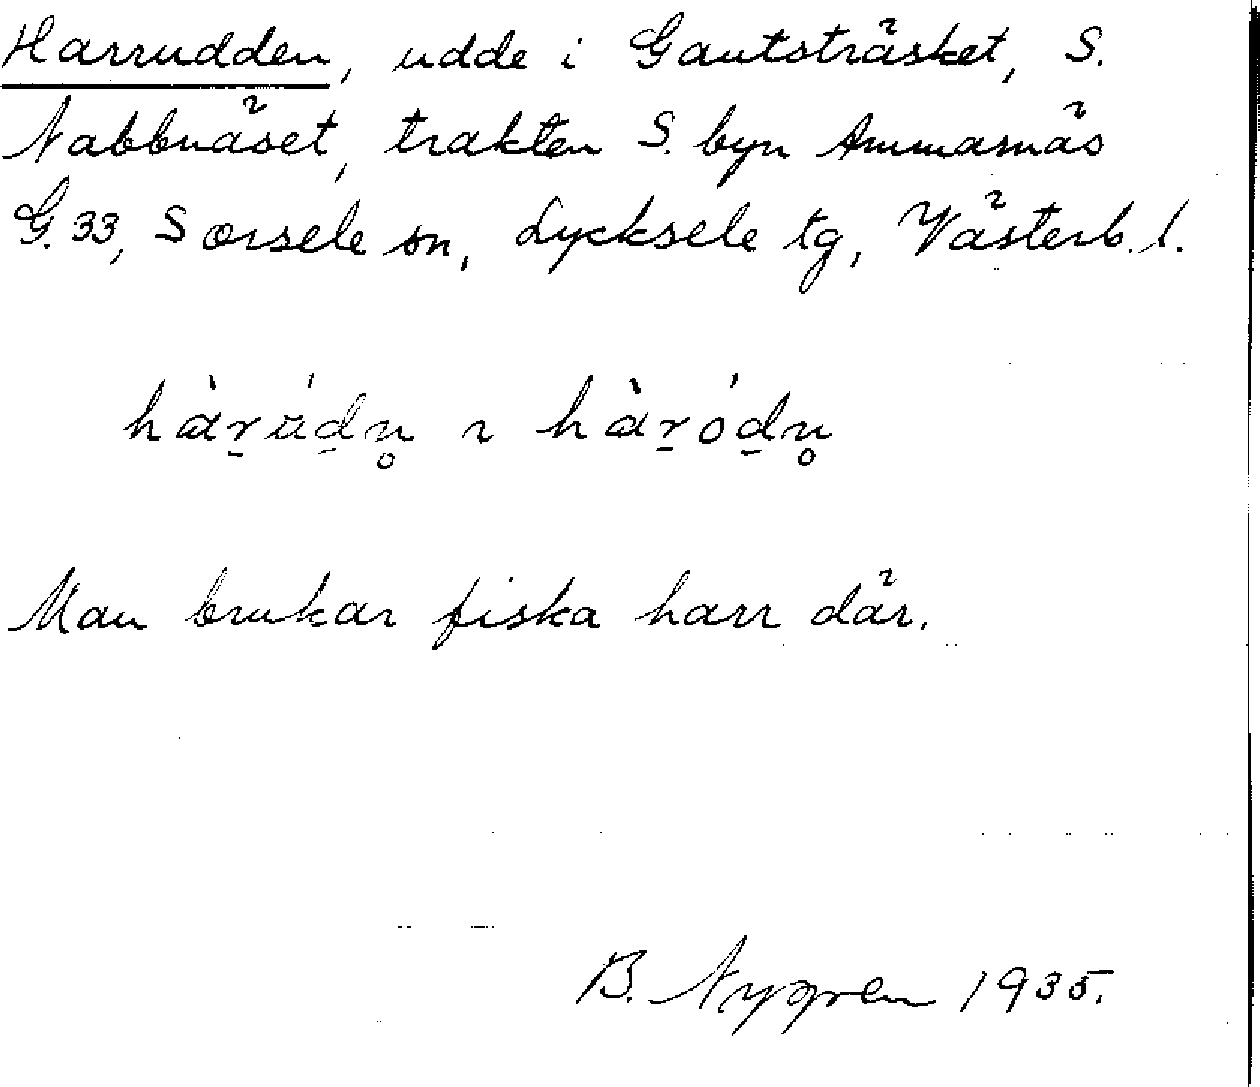 Harrudden, udde i Gautsträsket, S.
Nabbnäset, trakten S. byn Ammarnäs
G. 33, Sorsele sn, Lycksele tg, Västerb. l.
hàr̠ùd̠n̥ ~ hàr̠ód̠n̥
Man brukar fiska harr där.
B. Nygren 1935.